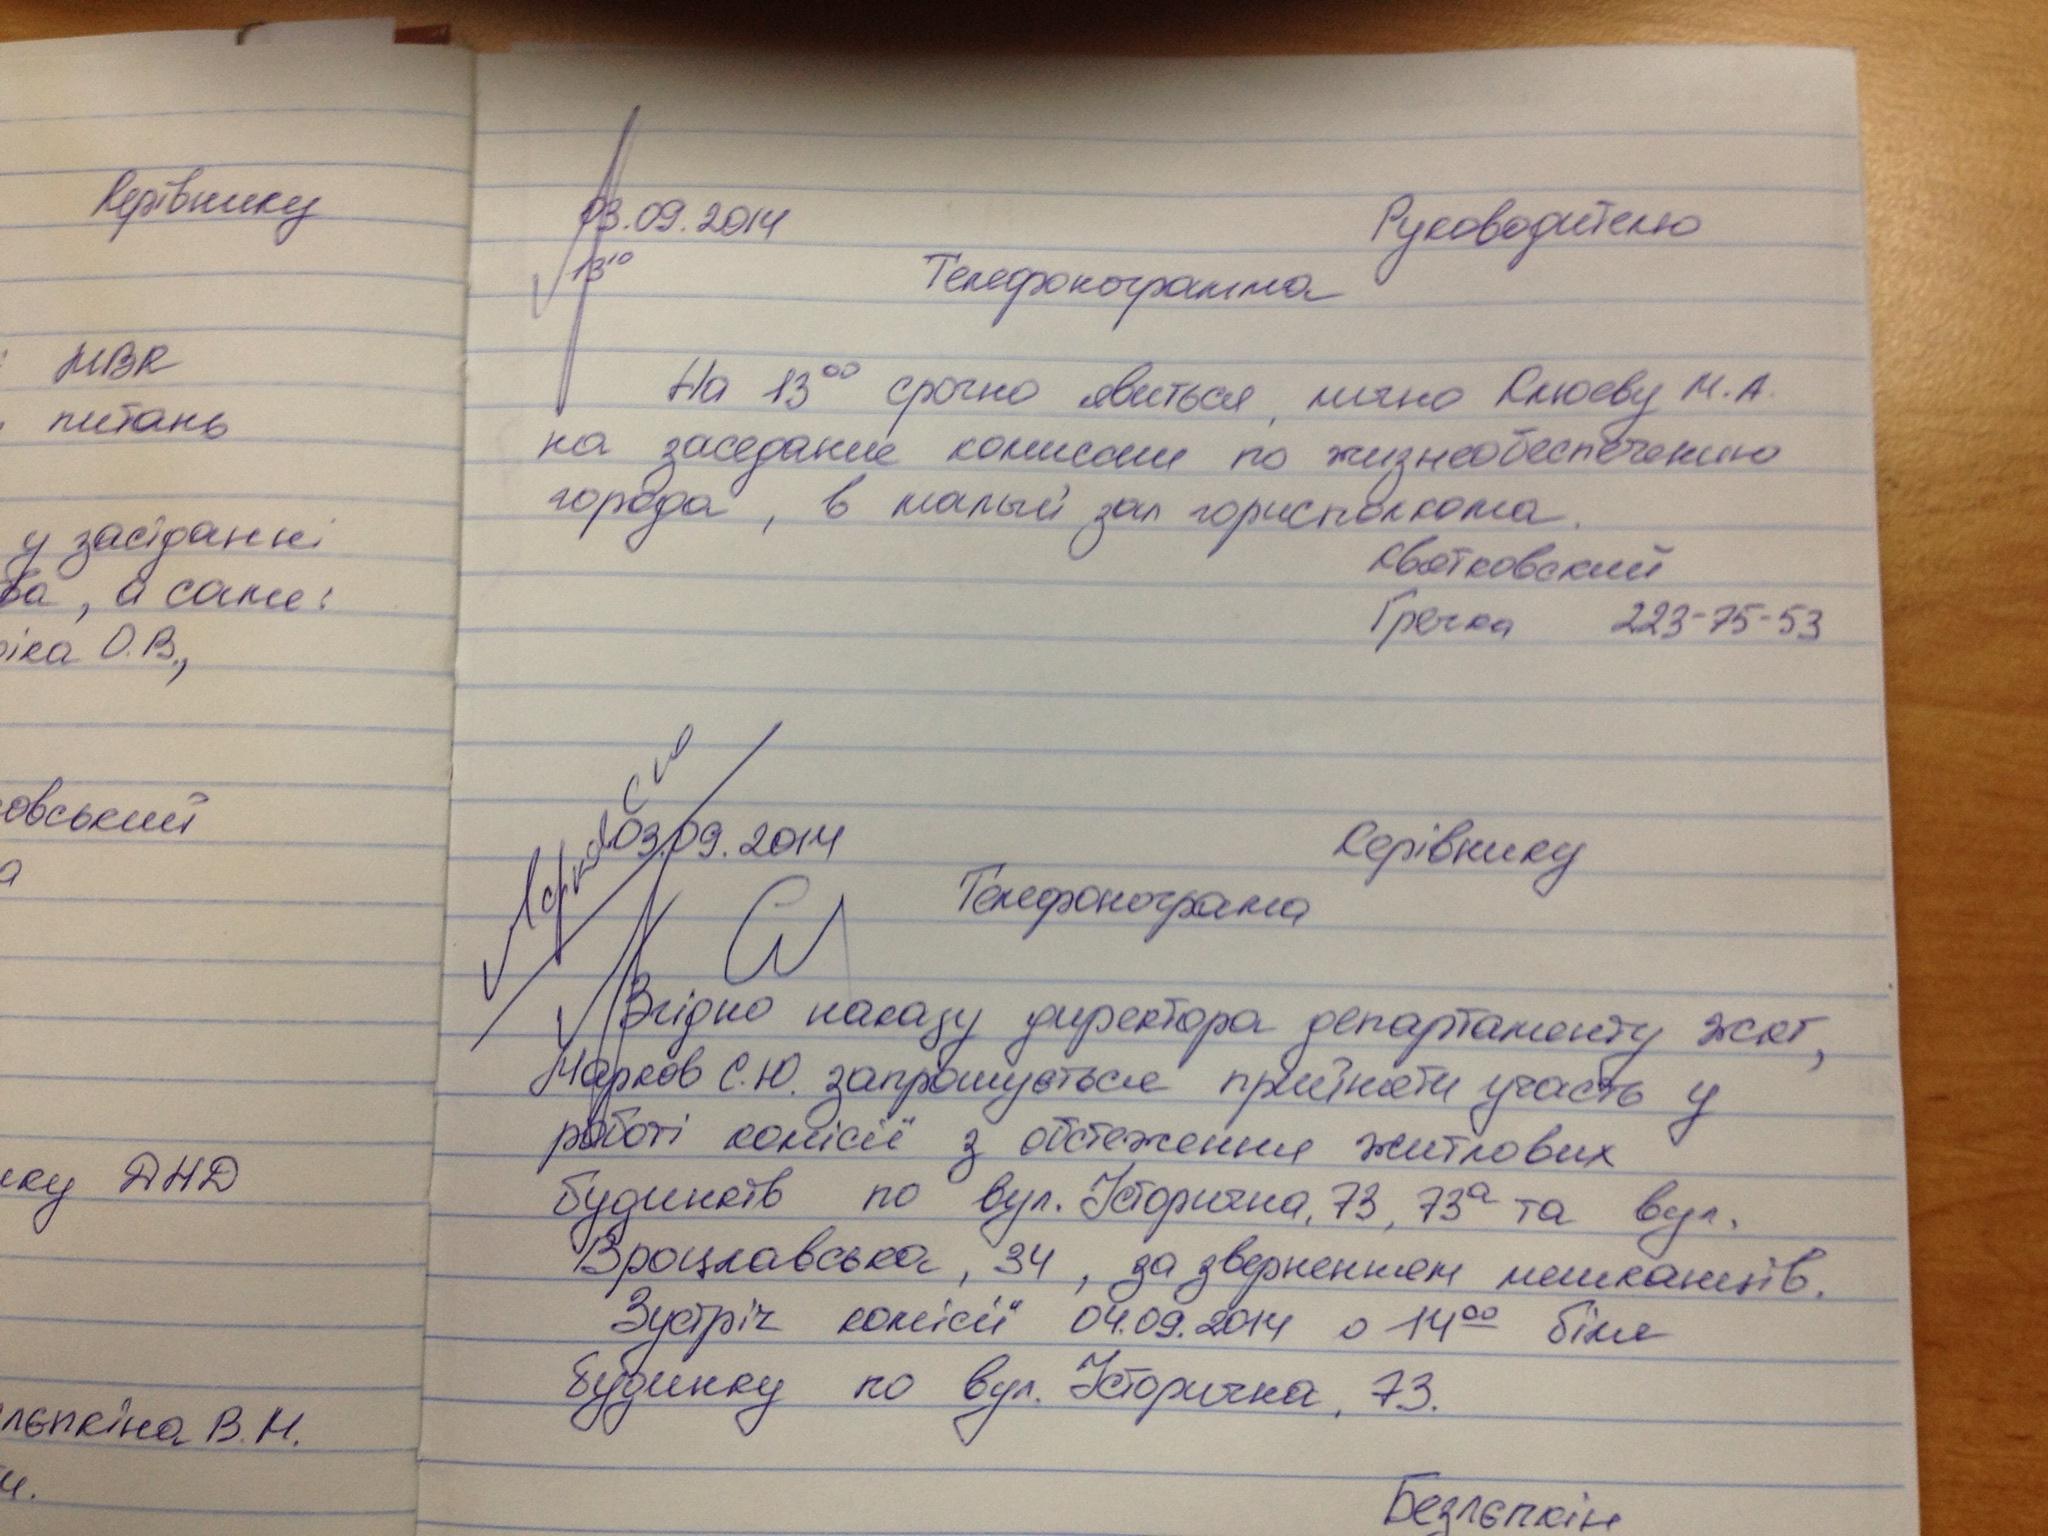 Керівнику
МВК
питань
у засіданні
, а саме:
О.В.,
ДНД
В.М.
03.09.2014 Руководителю
13¹⁰ Телефонограмма
На 13⁰⁰ срочно явиться, лично Клюеву М.А.
на заседание комиссии по жизнеобеспечению
города, в малый зал горисполкома.
Квятковский
Гречка 223-75-53
03.09.2014 Керівнику
Телефонограма
Згідно наказу директора департаменту ЖКГ,
Марков С.Ю. запрошується прийняти участь у
роботі комісії з обстеження житлових
будинків по вул. Історична, 73, 73а та вул.
Вроцлавська, 34, за зверненням мешканців.
Зустріч комісії 04.09.2014 о 14⁰⁰ біля
будинку по вул. Історична, 73.
Безлєпкін